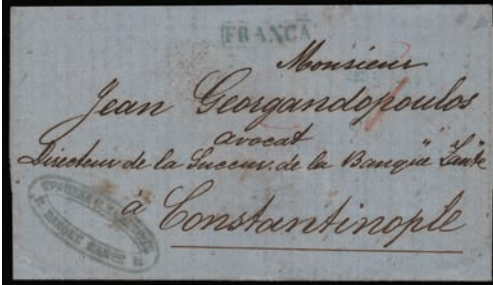 FRANCA
Monsieur
Jean Georgandopoulos
avocat
Directeur de la Succur. de la Banque "Zante"
à Constantinople